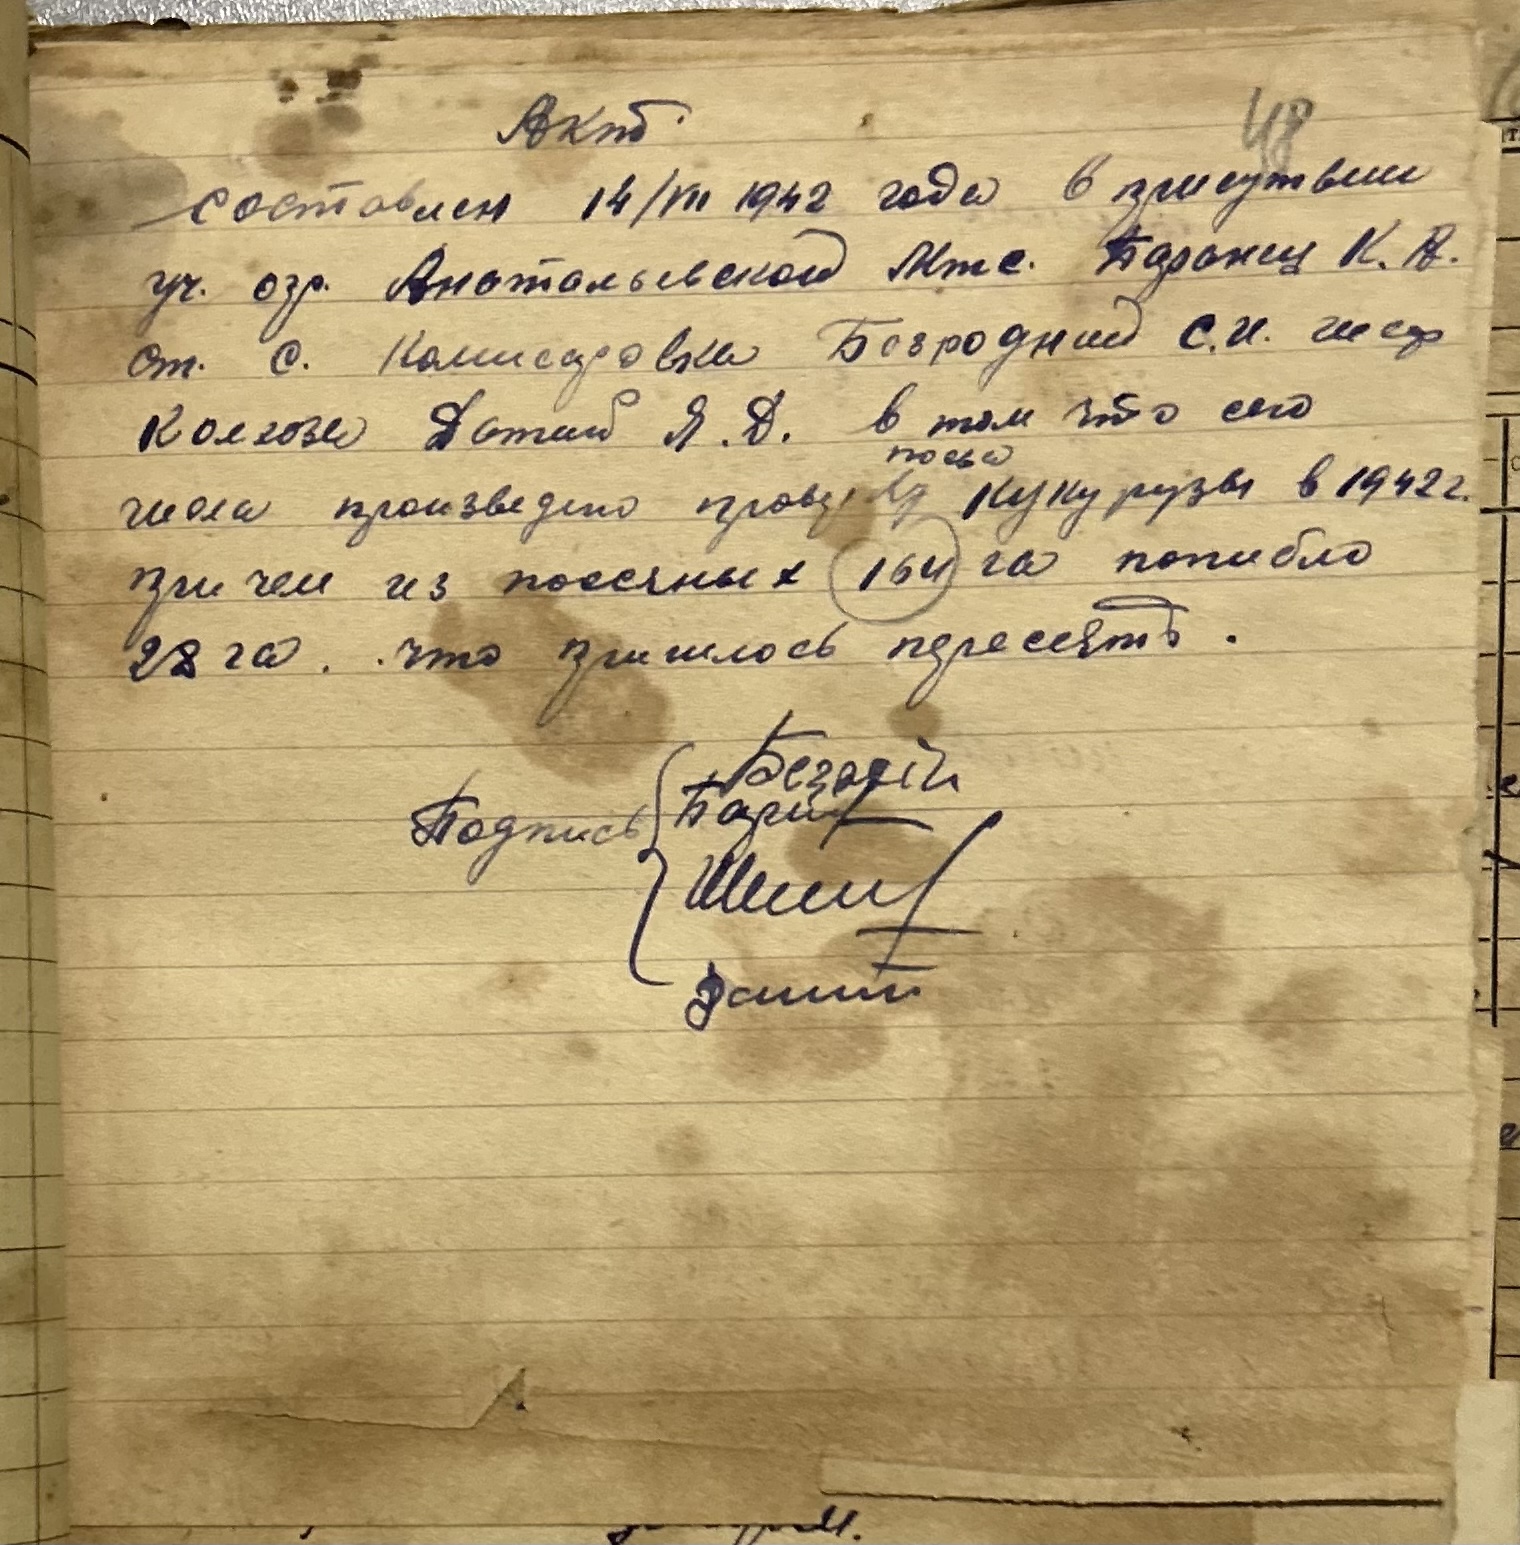 48
Актъ
составлен 14/VII 1942 года в присутвии
уч. агр. Анатальевской Мтс. Баранец К. А.
ст. с. Комисаровка Безродний С.И.
Колхоза Я.Д. в том что сего
числа произведено посева кукурузы в 1942 г.
причем из посеяных 164 га погибло
28 га. что пришлось пересеять.
Подпись